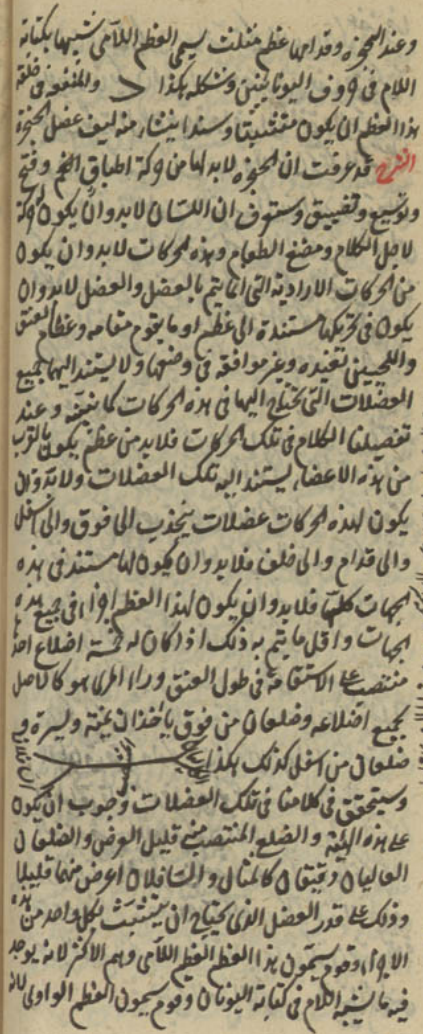 وعند الحنجرة وقدامها عظم مثلث يسمى العظم اللامى شبيها بكتابة
اللام فى حروف اليونانيين وشكله هكذا والمنفعة فى خلقة
هذا العظم ان يكون متشبثا وسندا ينشاء منه ليف عضل الحنجرة
الشرح قد عرفت ان الحنجرة لابد لها من حركة اطباق الفم وفتح
وتوسيع وتضييق وستعرف ان اللسان لابد وان يكون له حركة
لاجل الكلام ومضغ الطعام وهذه الحركات لابد وان يكون
من الحركات الارادية التى انما يتم بالعضل والعضل لابد وان
يكون فى تحريكها مستندة الى عظم او ما يقوم مقامه وعظام العنق
واللحيين بعيده وغير موافقة فى وضعها ولا يستند اليها جميع
العضلات التى يحتاج اليها فى هذه الحركات كما نبينه وعند
تفصيلنا الكلام فى تلك الحركات فلابد من عظم يكون بالقرب
من هذه الاعضاء ليستند اليه تلك العضلات ولابد وان
يكون لهذه الحركات عضلات يجذب الى فوق والى اسفل
والى قدام والى خلف فلابد وان يكون لها مستند فى هذه
الجهات كلها فلابد وان يكون لهذا العظم اجزاء فى جميع هذه
الجهات واقل ما يتم به ذلك اذا كان له خمسة اضلاع احدها
منتصب على الاستقامة فى طول العنق وراء المرى هو كالاصل
لجميع اضلاعه وضلعان من فوق ياخذان يمنة ويسرة و
ضلعان من اسفل كذلك هكذا
وسيتحقق فى كلامنا فى تلك العضلات وجوب ان يكون
على هذه الهيئة والضلع المنتصب منه قليل العرض والضلعان
العاليان دقيقان كالمثال والسافلان اعرض منهما قليلا
وذلك على قدر العضل الذى يحتاج ان يتشبث بكل واحد من هذه
الاجزاء وقوم يسمون هذا العظم العظم اللامى وهم الاكثر لانه يوجد
فيه ما يشبه اللام فى كتابة اليونان وقوم يسمون العظم الواوى لانه